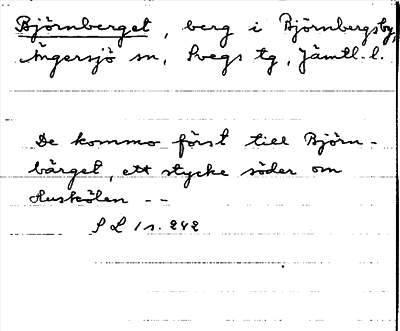 Björnberget, berg i Björnbergsby,
Ängersjö sn, Svegs tg, Jämtl. l.
De kommo först till Björn-
bärget, ett stycke söder om
Huskölen - -
S L 1 s. 242